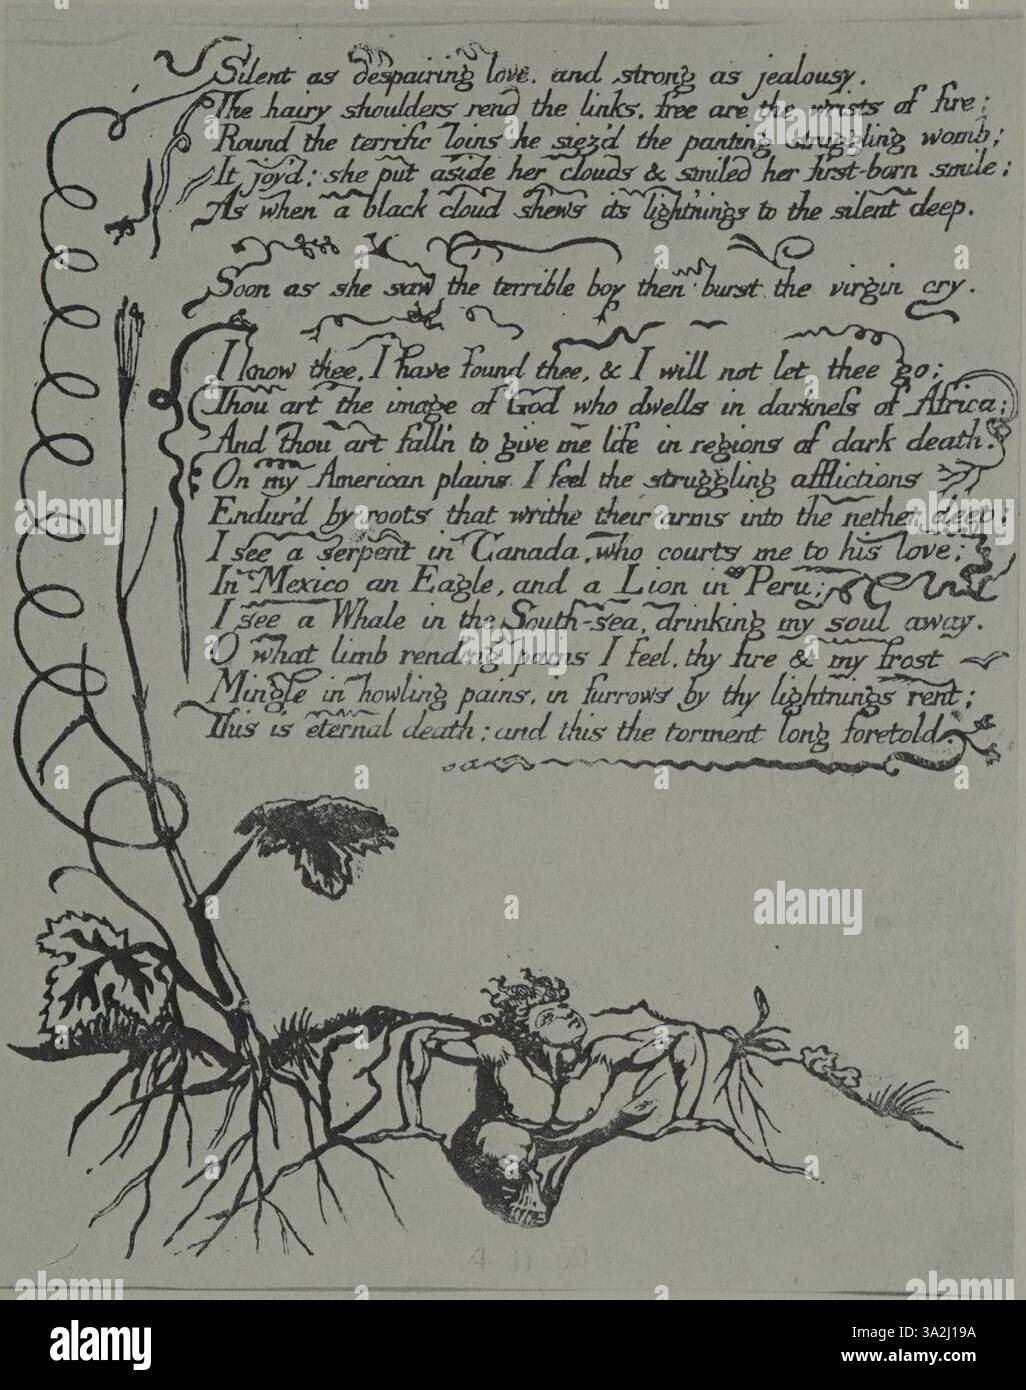 Silent as despairing love, and strong as jealousy.
The hairy shoulders rend the links, free are the wrists of fire;
Round the terrific loins he siez'd the panting struggling womb;
It joy'd: she put aside her clouds & smiled her first-born smile;
As when a black cloud shews its light'nings to the silent deep.
Soon as she saw the terrible boy then burst the virgin cry.
I know thee, I have found thee, & I will not let thee go;
Thou art the image of God who dwells in darkneſs of Africa;
And thou art fall'n to give me life in regions of dark death.
On my American plains I feel the struggling afflictions
Endur'd by roots that writhe their arms into the nether deep:
I see a serpent in Canada, who courts me to his love;
In Mexico an Eagle, and a Lion in Peru;
I see a Whale in the South-sea, drinking my soul away.
O what limb rending pains I feel, thy fire & my frost
Mingle in howling pains, in furrows by thy lightnings rent;
This is eternal death; and this the torment long foretold
alamy
Image ID: 3A2J19A
www.alamy.com